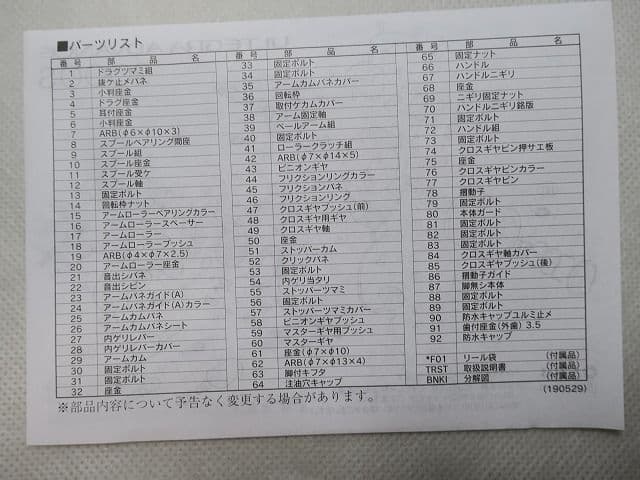 ■パーツリスト
番号 部品名
1 ドラグツマミ組
2 抜ケ止メバネ
3 小判座金
4 ドラグ座金
5 耳付座金
6 小判座金
7 ARB(φ6×φ10×3)
8 スプールベアリング間座
9 スプール組
10 スプール座金
11 スプール受ケ
12 スプール軸
13 固定ボルト
14 回転枠ナット
15 アームローラーベアリングカラー
16 アームローラースペーサー
17 アームローラー
18 アームローラーブッシュ
19 ARB(φ4×φ7×2.5)
20 アームローラー座金
21 音出シバネ
22 音出シピン
23 アームバネガイド(A)
24 アームバネガイド(A)カラー
25 アームカムバネ
26 アームカムバネシート
27 内ゲリレバー
28 内ゲリレバーカバー
29 アームカム
30 固定ボルト
31 固定ボルト
32 座金
番号 部品名
33 固定ボルト
34 固定ボルト
35 アームカムバネカバー
36 回転枠
37 取付ケカムカバー
38 アーム固定軸
39 ベールアーム組
40 固定ボルト
41 ローラークラッチ組
42 ARB(φ7×φ14×5)
43 ピニオンギヤ
44 フリクションリングカラー
45 フリクションバネ
46 フリクションリング
47 クロスギヤブッシュ(前)
48 クロスギヤ用ギヤ
49 クロスギヤ軸
50 座金
51 ストッパーカム
52 クリックバネ
53 固定ボルト
54 内ゲリ当タリ
55 ストッパーツマミ
56 固定ボルト
57 ストッパーツマミカバー
58 ピニオンギヤブッシュ
59 マスターギヤ用ブッシュ
60 マスターギヤ
61 座金(φ7×φ10)
62 ARB(φ7×φ13×4)
63 脚付キフタ
64 注油穴キャップ
番号 部品名
65 固定ナット
66 ハンドル
67 ハンドルニギリ
68 座金
69 ニギリ固定ナット
70 ハンドルニギリ銘版
71 固定ボルト
72 ハンドル組
73 固定ボルト
74 クロスギヤピン押サエ板
75 座金
76 クロスギヤピンカラー
77 クロスギヤピン
78 摺動子
79 固定ボルト
80 本体ガード
81 固定ボルト
82 固定ボルト
83 固定ボルト
84 クロスギヤ軸カバー
85 クロスギヤブッシュ(後)
86 摺動子ガイド
87 脚無シ本体
88 固定ボルト
89 固定ボルト
90 防水キャップユルミ止メ
91 歯付座金(外歯)3.5
92 防水キャップ
*F01 リール袋 (付属品)
TRST 取扱説明書 (付属品)
BNKI 分解図 (付属品)
(190529)
※部品内容について予告なく変更する場合があります。